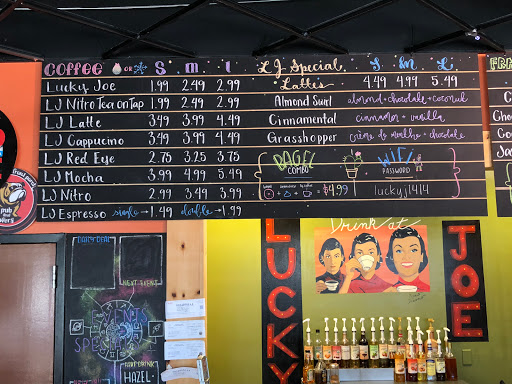 COFFEE OR S M L
Lucky Joe 1.99 2.49 2.99
LJ Nitro Tea on Tap 1.99 2.49 2.99
LJ Latte 3.49 3.99 4.49
LJ Cappucino 3.49 3.99 4.49
LJ Red Eye 2.75 3.25 3.75
LJ Mocha 3.99 4.99 5.49
LJ Nitro 2.99 3.49 3.99
LJ Espresso single → 1.49 double → 1.99
LJ Special Latte's S M L
4.49 4.99 5.49
Almond Surl almond + chocolate + coconut
Cinnamental cinnamon + vanilla
Grasshopper crème de menthe + chocolate
BAGEL COMBO
+ + = $4.99
WIFI PASSWORD
luckyj1414
FR
Drink at
LUCKY
JOE
DAILY DEAL
NEXT EVENT
HAZEL